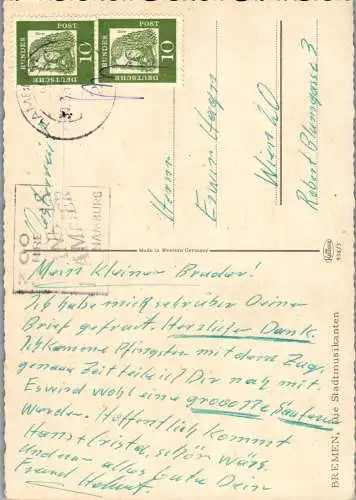 DEUTSCHE
BUNDES
POST
10
DEUTSCHE
BUNDES
POST
10
HAMBURG
90
JAHRE
Herrn
Erwin Hagn
Wien 20
Robert Blumgasse 3
Österreich
Made in Western Germany
Mein kleiner Bruder!
Ich habe mich sehr über Deinen
Brief gefreut. Herzlichen Dank.
Ich komme Pfingsten mit dem Zug,
genaue Zeit teile ich Dir noch mit.
Es wird wohl eine grooolle
werden. Hoffentlich kommt
Hans + Christa, schön wärs.
alles Gute Dein
Freund Helmut
BREMEN, Die Stadtmusikanten